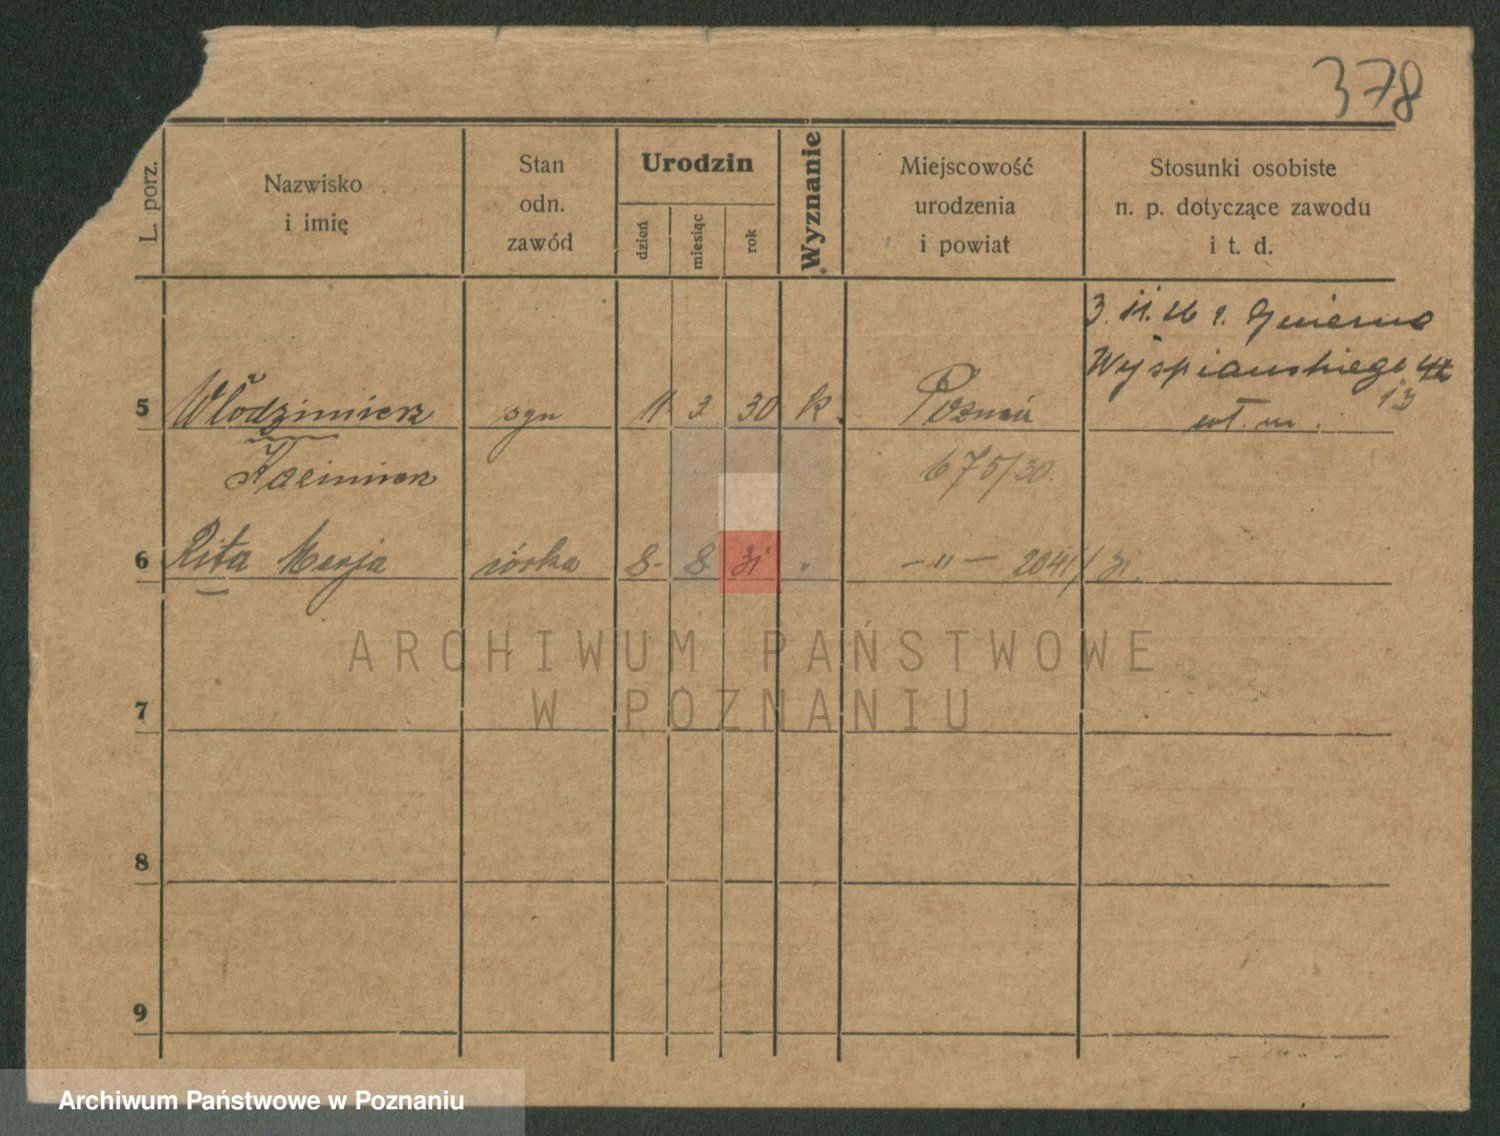 378
L. porz.
Nazwisko
i imię
Stan
odn.
zawód
Urodzin
dzień
miesiąc
rok
Wyznanie
Miejscowość
urodzenia
i powiat
Stosunki osobiste
n. p. dotyczące zawodu
i t. d.
Wyspiańskiego
5 Włodzimierz syn 11 3 30 k. Poznań
Kazimierz 675/30.
6 Rita Marja córka 8. 8 31 " — " — 2041/31
ARCHIWUM PAŃSTWOWE
W POZNANIU
7
8
9
Archiwum Państwowe w Poznaniu